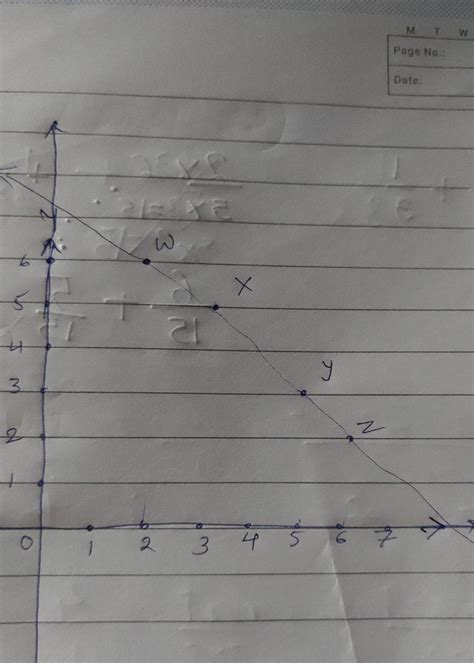 M T W
Page No.:
Date:
W
6
X
5
4
3
y
2
Z
1
0 1 2 3 4 5 6 7